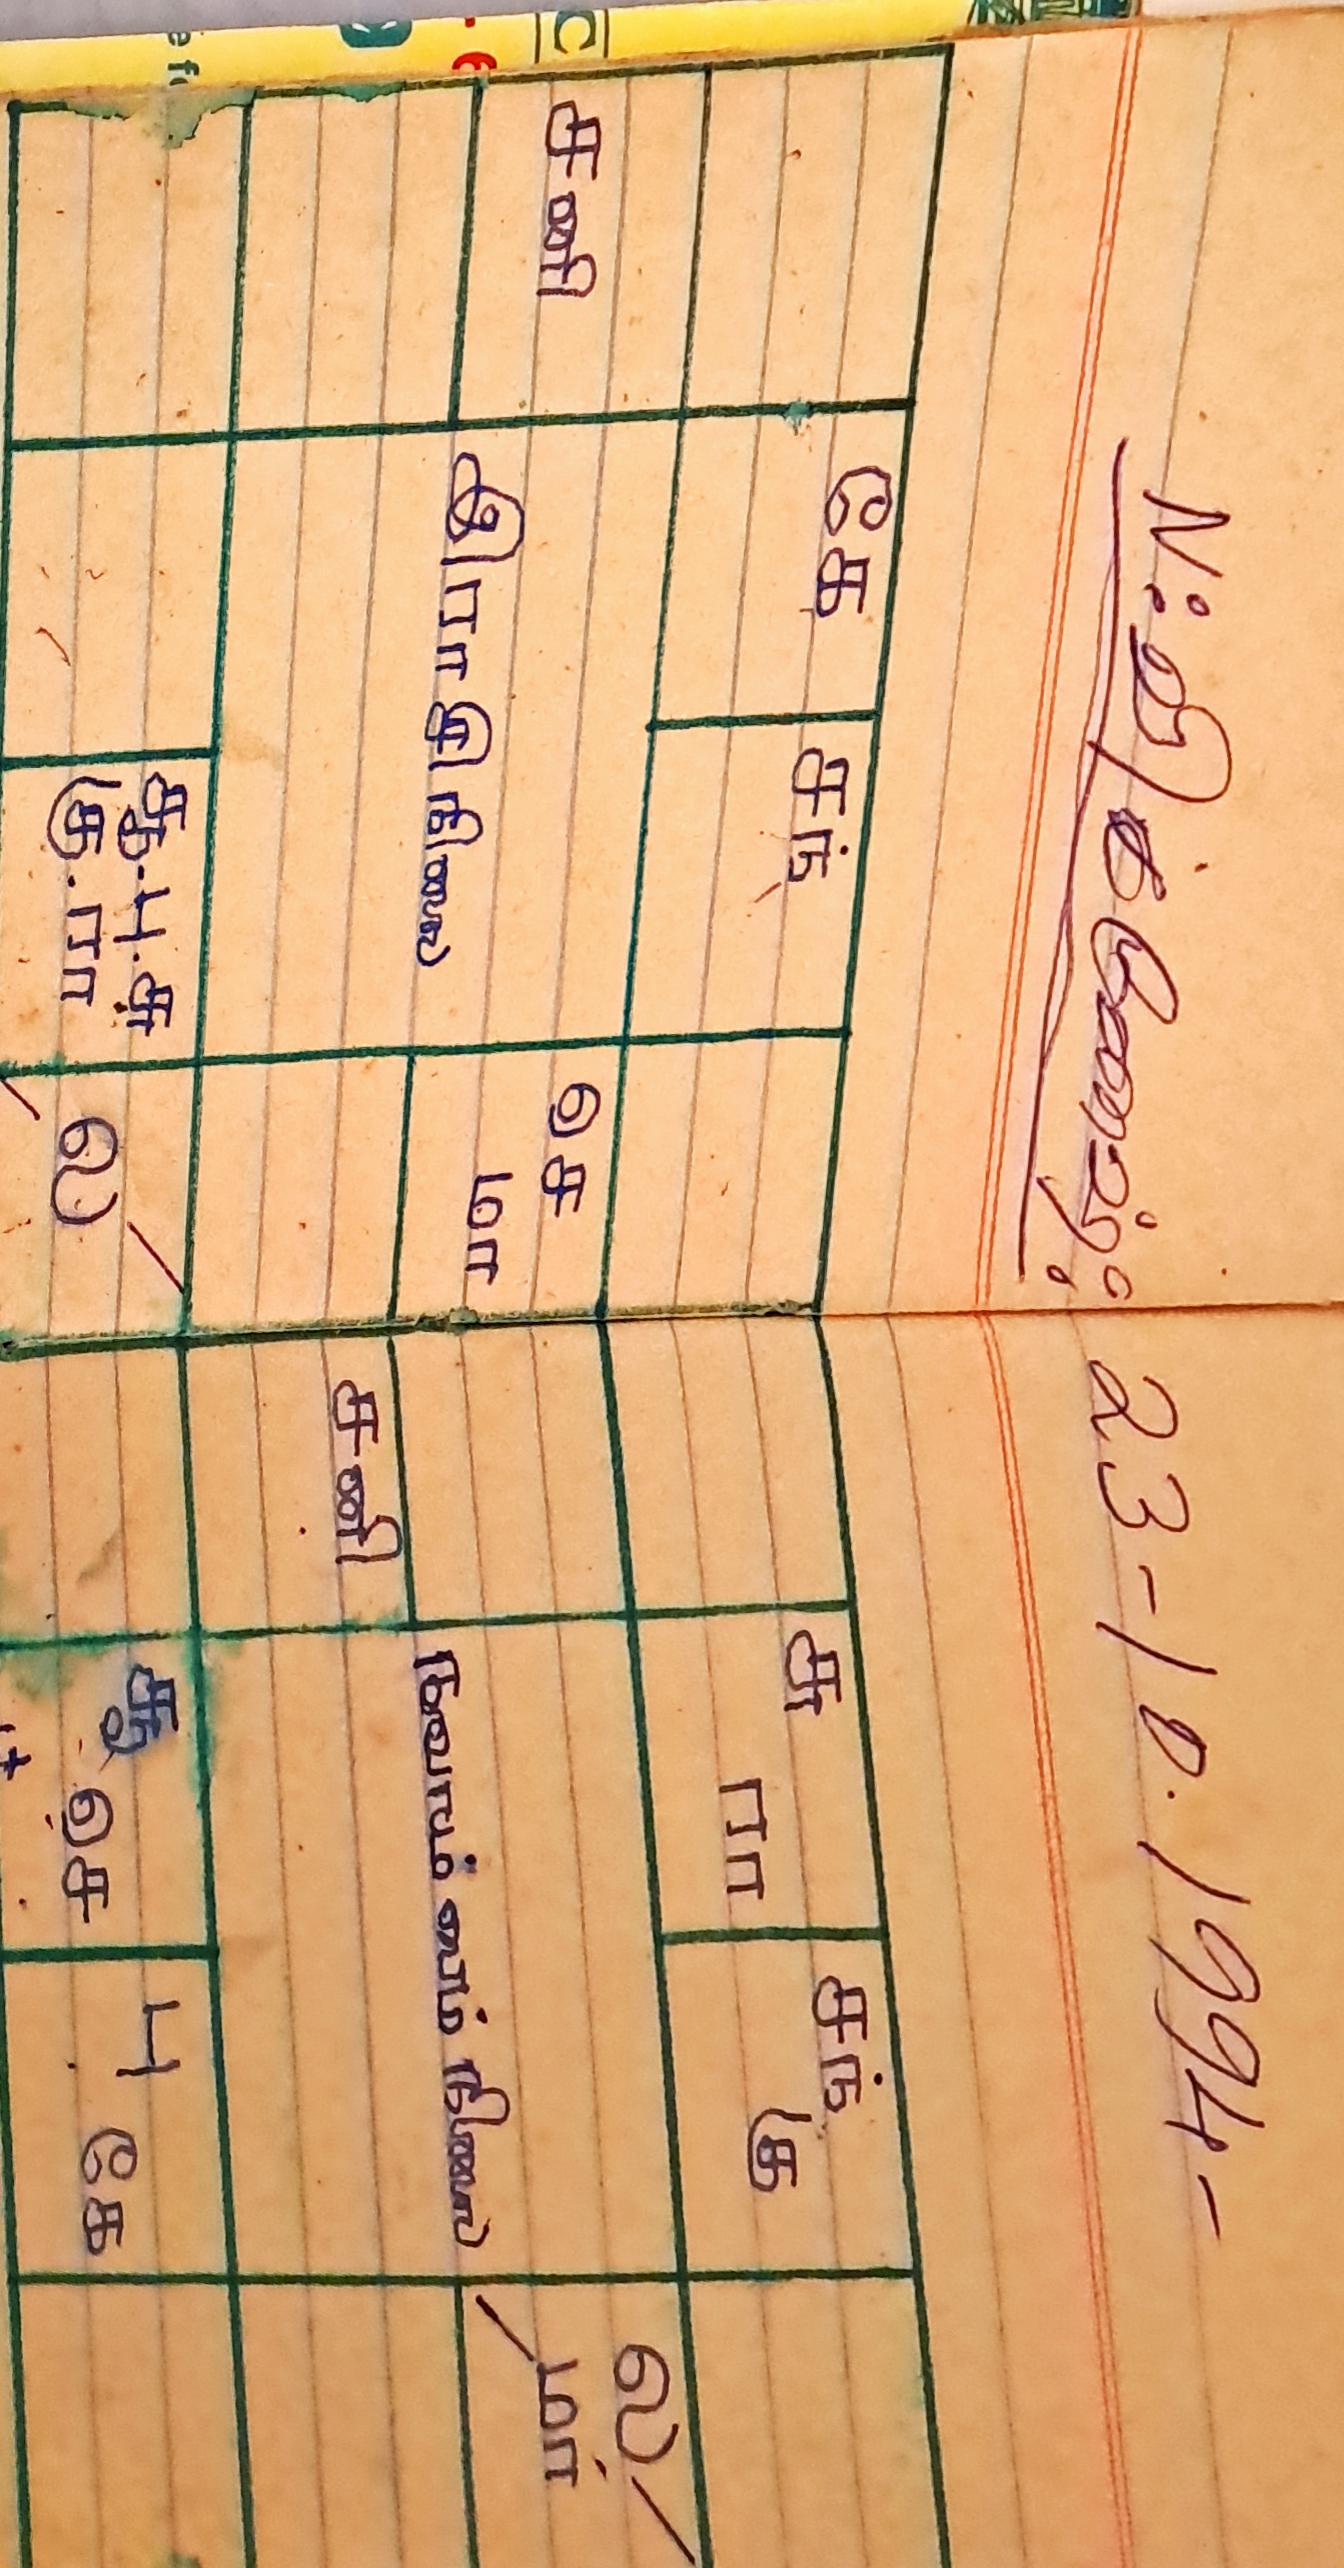 23-10.1994-
கே
சந்
சனி
செ
மா
இராசிநிலை
சு.பு.சூ
கு.ரா
ல
சூ
ரா
சந்
கு
ல
மா
சனி
நவாம்சம் நிலை
சு
செ
பு
கே